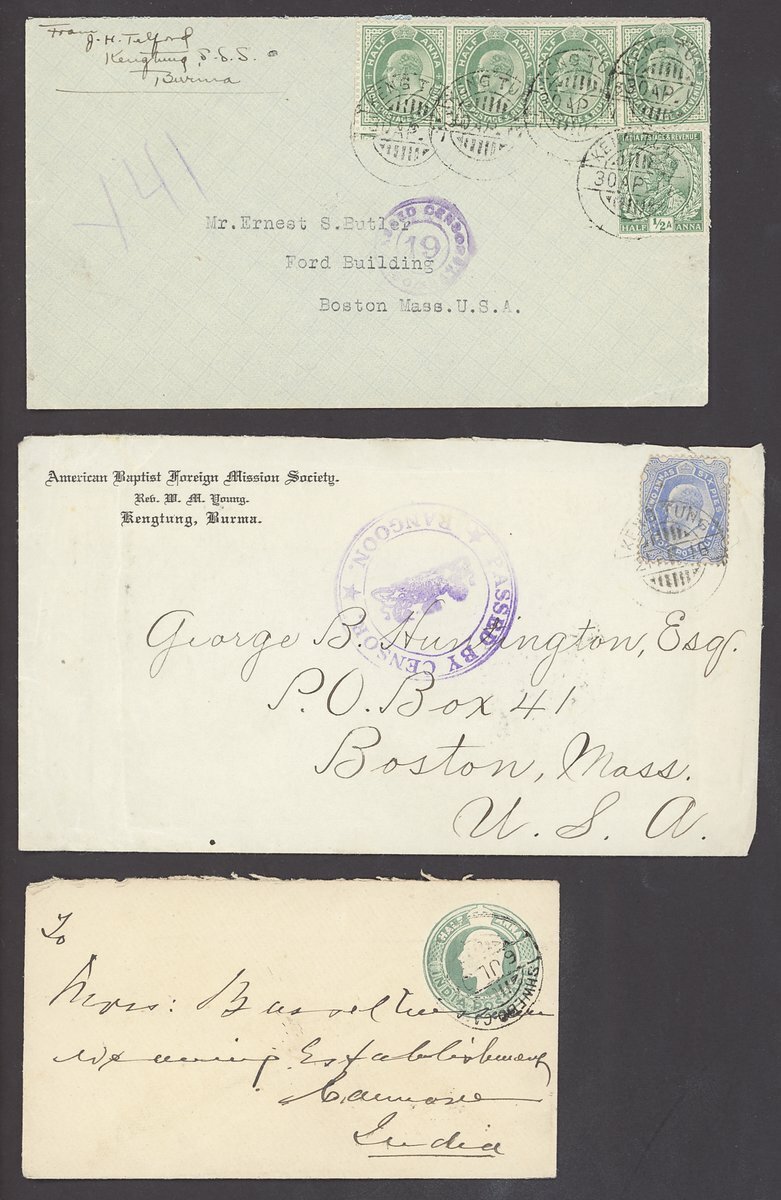 From
J. H. Telford
Kengtung, S.S.S.
Burma
HALF ANNA
HALF ANNA
HALF ANNA
HALF ANNA
KENG TU
30 AP.
INDIA POSTAGE & REVENUE
HALF 1/2A ANNA
KENG
30 AP
X41
CENSOR
19
Mr. Ernest S. Butler
Ford Building
Boston Mass. U.S.A.
American Baptist Foreign Mission Society.
Rev. W. M. Young.
Kengtung, Burma.
KENG TUNG
PASSED BY CENSOR ★ RANGOON. ★
George B. Huntington, Esq.
P.O. Box 41
Boston, Mass.
U. S. A.
To
HALF ANNA
SHWEBO
JUL
Establishment
Cannanore
India